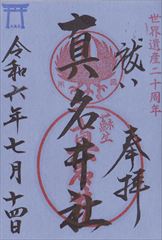 世界遺産二十周年
祓い
奉拝
真名井社
蘇生
令和六年七月十四日